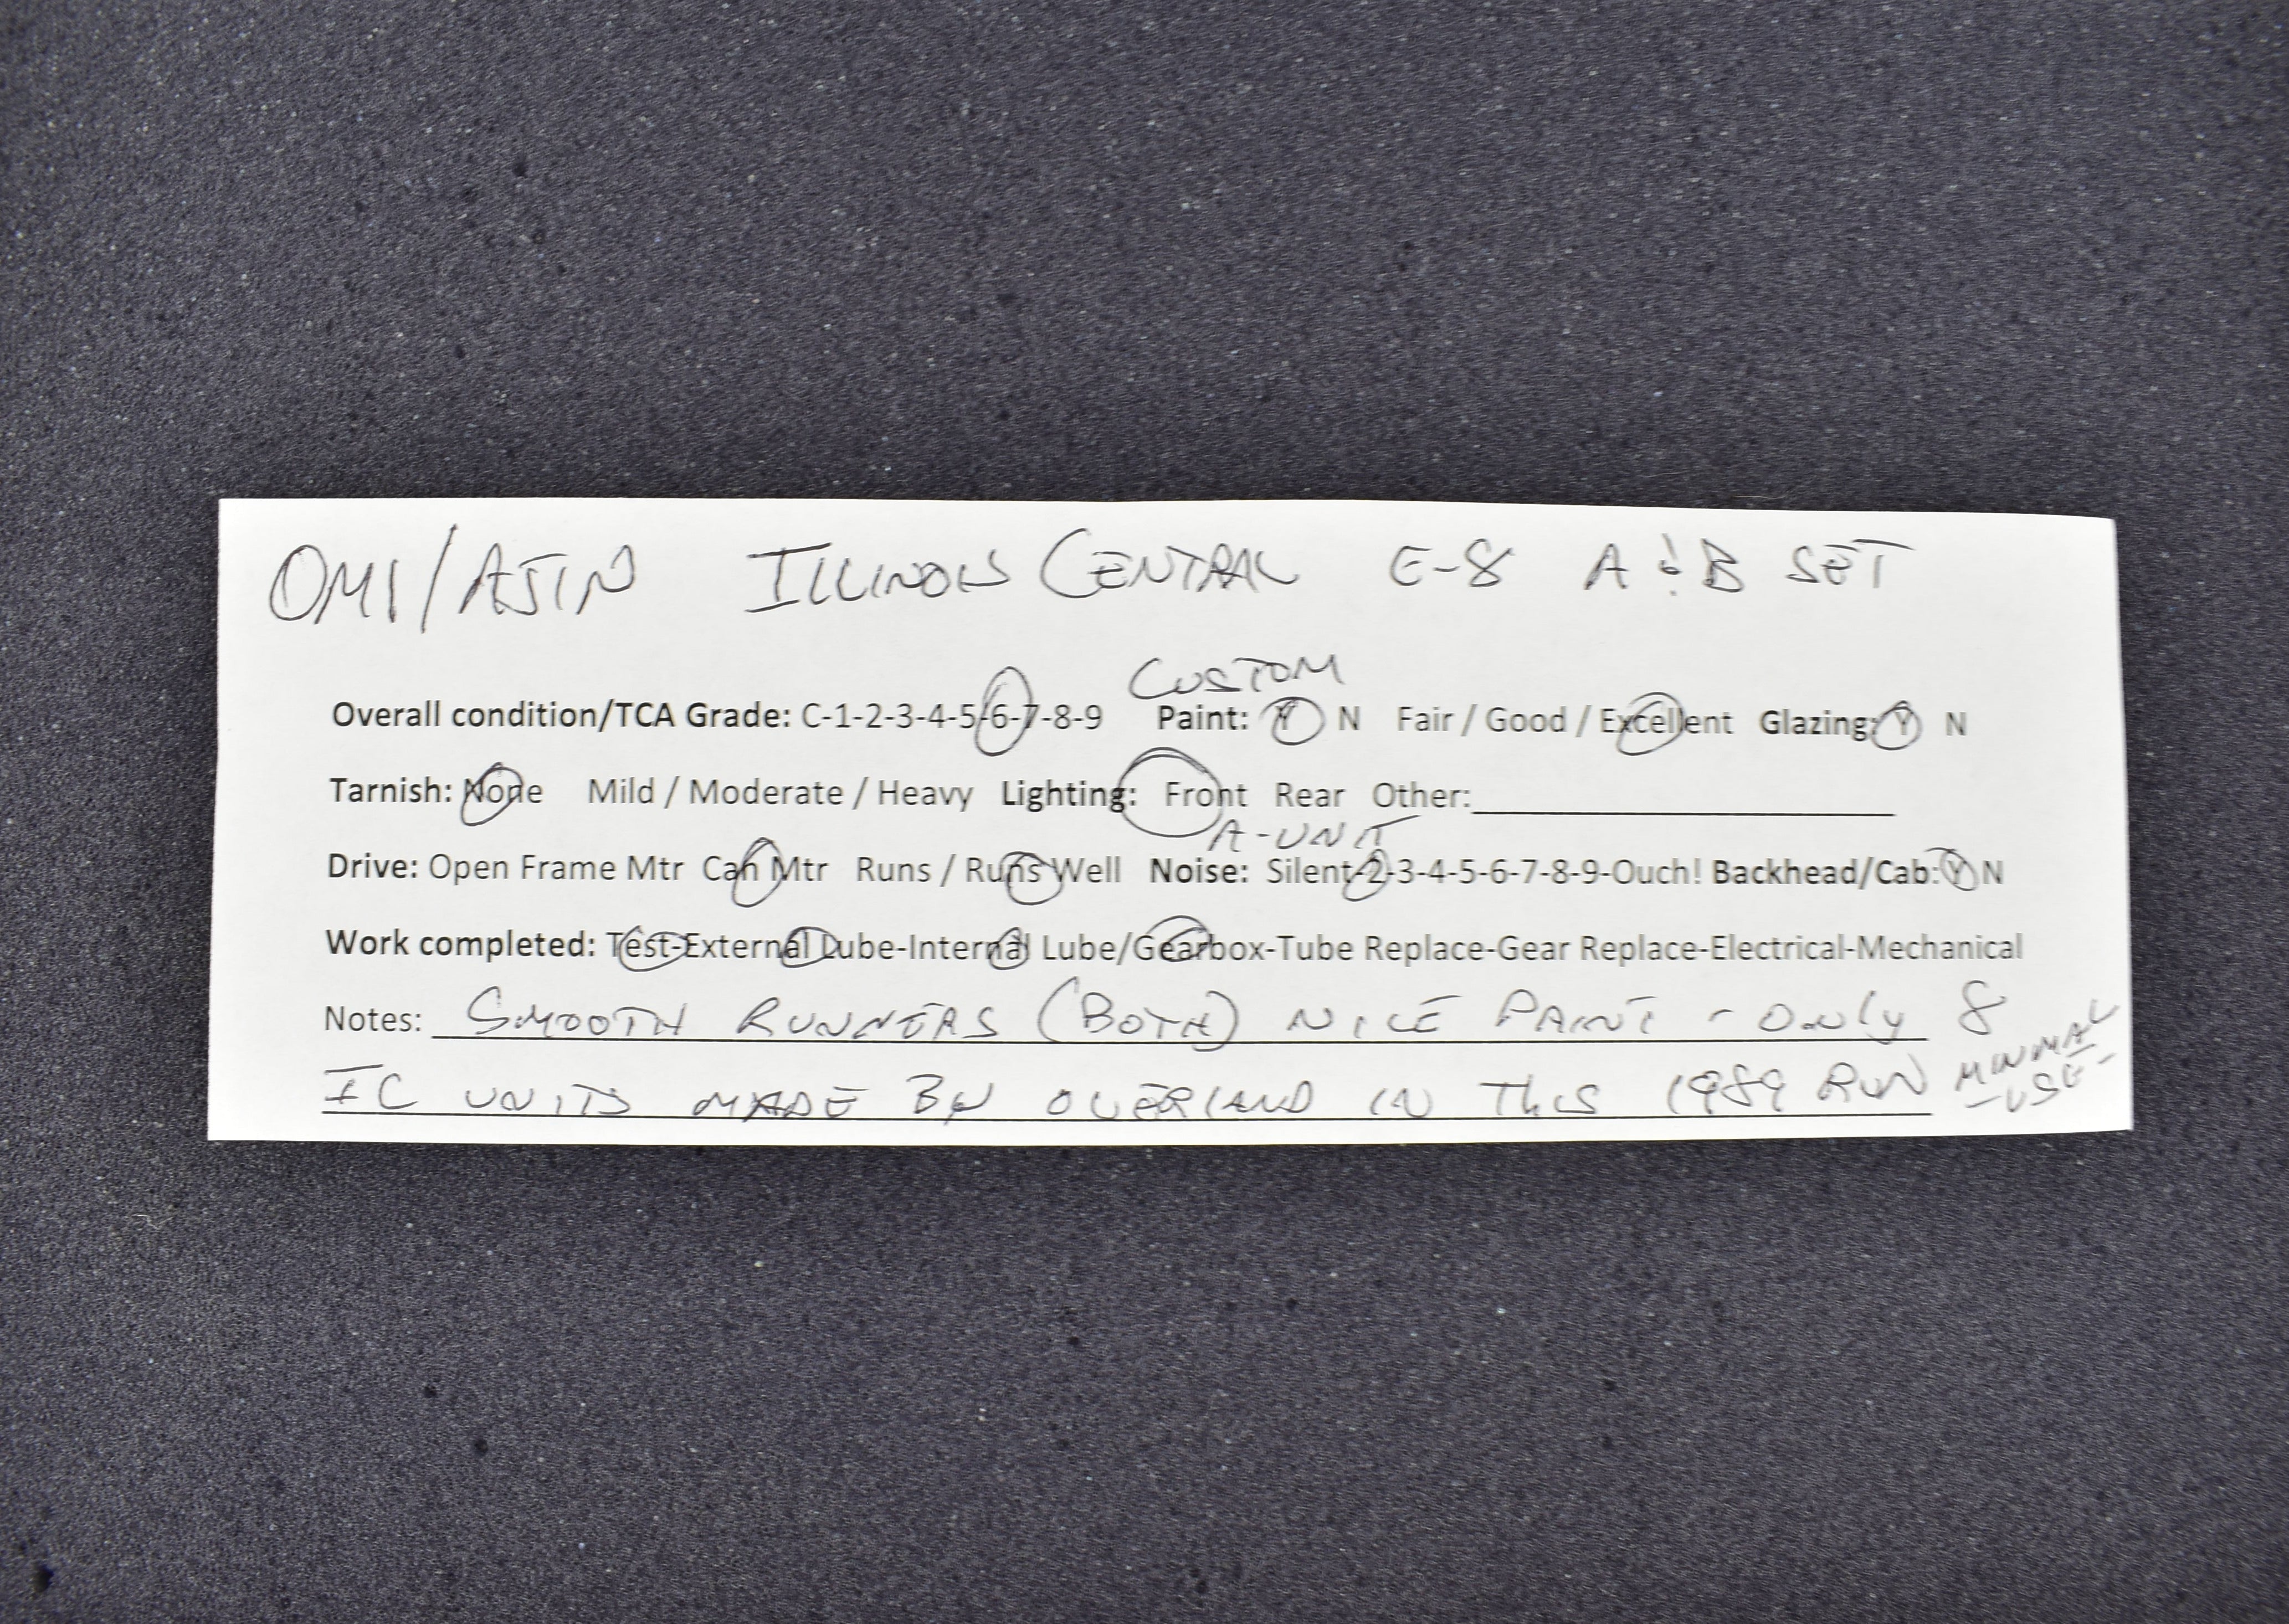 OMI/AJIN ILLINOIS CENTRAL E-8 A & B SET
CUSTOM
Overall condition/TCA Grade: C-1-2-3-4-5-6-7-8-9 Paint: Y N Fair / Good / Excellent Glazing: Y N
Tarnish: None Mild / Moderate / Heavy Lighting: Front Rear Other:
A-UNIT
Drive: Open Frame Mtr Can Mtr Runs / Runs Well Noise: Silent-2-3-4-5-6-7-8-9-Ouch! Backhead/Cab: Y N
Work completed: Test-External Lube-Internal Lube/Gearbox-Tube Replace-Gear Replace-Electrical-Mechanical
Notes: SMOOTH RUNNERS (BOTH) NICE PAINT - ONLY 8
IC UNITS MADE BY OVERLAND IN THIS 1989 RUN
MINMAL
-USE-